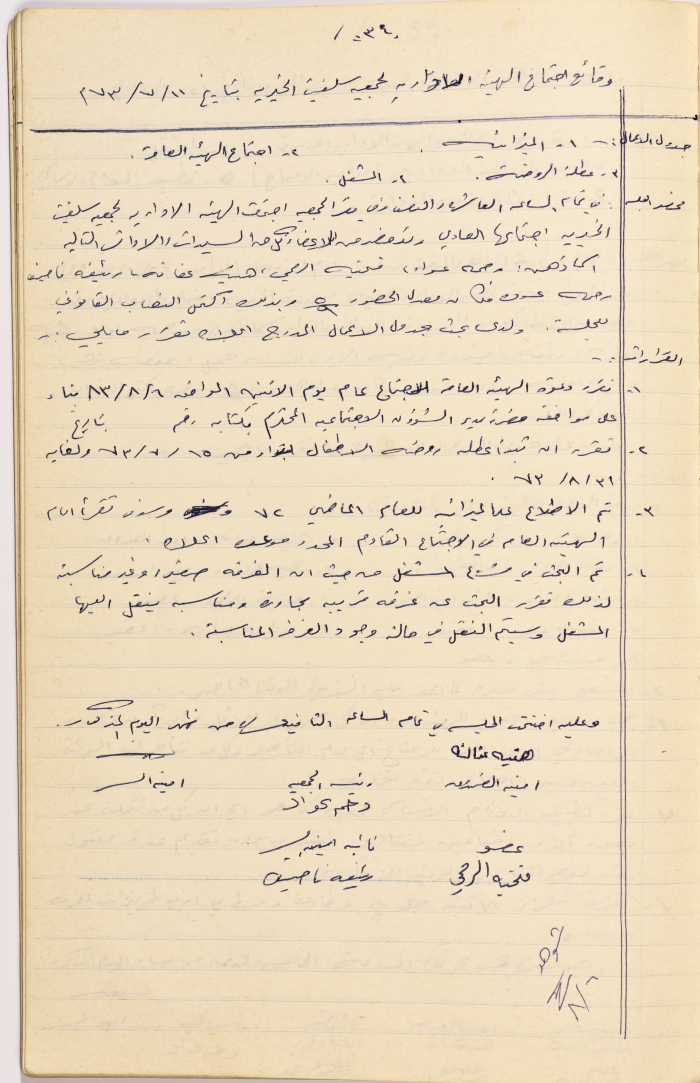 -٣٤-
وقائع اجتماع الهيئة الادارية لجمعية سلفيت الخيرية بتاريخ ١١/٧/٧٣م
جدول الاعمال :- ١- الميزانية . ٢- اجتماع الهيئة العامة .
٣- عطلة الروضة . ٤- المشغل .
محضر الجلسة : في تمام الساعة العاشرة والنصف في مقر الجمعية اجتمعت الهيئة الادارية لجمعية سلفيت
الخيرية اجتماعها العادي وقد حضر من الاعضاء كل من السيدات والاوانس التالية
اسماؤهن : رحمه عواد ، فتحيه الرمحي ، هنيه عفانه ، رئيفه ناصيف
رحمه عوده فكان معدل الحضور ٥ وبذلك اكتمل النصاب القانوني
للجلسة . ولدى بحث جدول الاعمال المدرج اعلاه تقرر مايلي :-
القرارات :-
١- تقرر دعوة الهيئة العامة للاجتماع عام يوم الاثنين الموافق ٦/٨/٨٣ بناء
على موافقة حضرة مدير الشؤون الاجتماعية المحترم بكتابه رقم بتاريخ
٢- تقرر ان تبدأ عطلة روضة الاطفال من ١٥/٧/٧٣ ولغاية
٣١/٨/٧٣ .
٣- تم الاطلاع على الميزانية للعام الماضي ٧٢ وسوف تقرأ امام
الهيئة العامة في الاجتماع القادم المحدد موعده اعلاه .
٤- تم البحث في المشغل من حيث ان الغرفة صغيرة وغير مناسبة
لذلك تقرر البحث عن غرفة قريبة مجاورة ومناسبة ينقل اليها
المشغل وسيتم النقل في حالة وجود الغرف المناسبة .
وعليه اختتمت الجلسة في تمام الساعة الثانية من ظهر اليوم المذكور .
هنيه عفانه
امينة الصندوق رئيسة الجمعية امينة السر
رحمه عواد
عضو نائبة امينة السر
فتحيه الرمحي رئيفه ناصيف